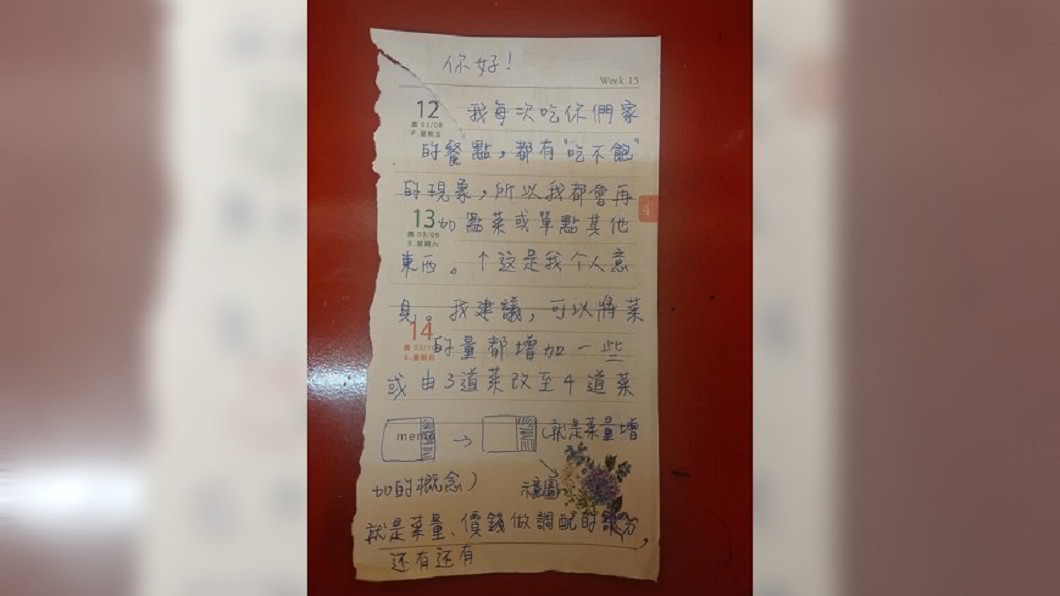 你好!
Week 15
12
農 03/08
F.星期五
我每次吃你們家
的餐點,都有"吃不飽"
的現象,所以我都會再
4
13
農 03/09
S.星期六
加點菜或單點其他
東西。↑这是我个人意
見。我建議,可以將菜
14
農 03/10
S.星期日
的量都增加一些
或由3道菜改至4道菜
memo → (就是菜量增
加的概念)
示意圖
就是菜量、價錢做調配的部分,
还有还有